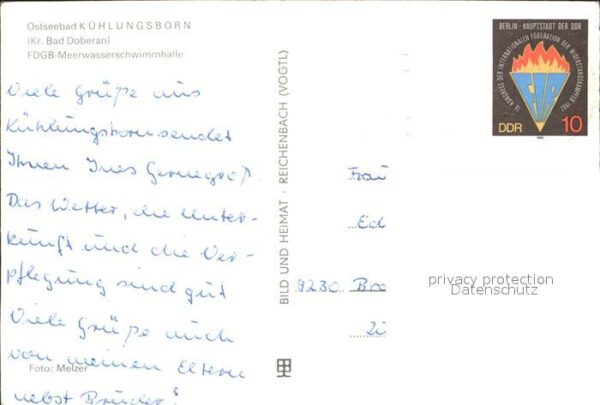 Ostseebad KÜHLUNGSBORN
(Kr. Bad Doberan)
FDGB-Meerwasserschwimmhalle
Viele Grüße aus
Kühlungsborn sendet
Ihnen Ines Gernegroß.
Das Wetter, die Unter-
kunft und die Ver-
pflegung sind gut
Viele Grüße auch
von meinen Eltern
nebst Bruder!
Foto: Melzer
BILD UND HEIMAT · REICHENBACH (VOGTL)
BERLIN - HAUPTSTADT DER DDR
IX. KONGRESS DER INTERNATIONALEN FÖDERATION DER WIDERSTANDSKÄMPFER 1982
FIR
DDR 10
Frau
Ed
9230 Bro
privacy protection
Datenschutz